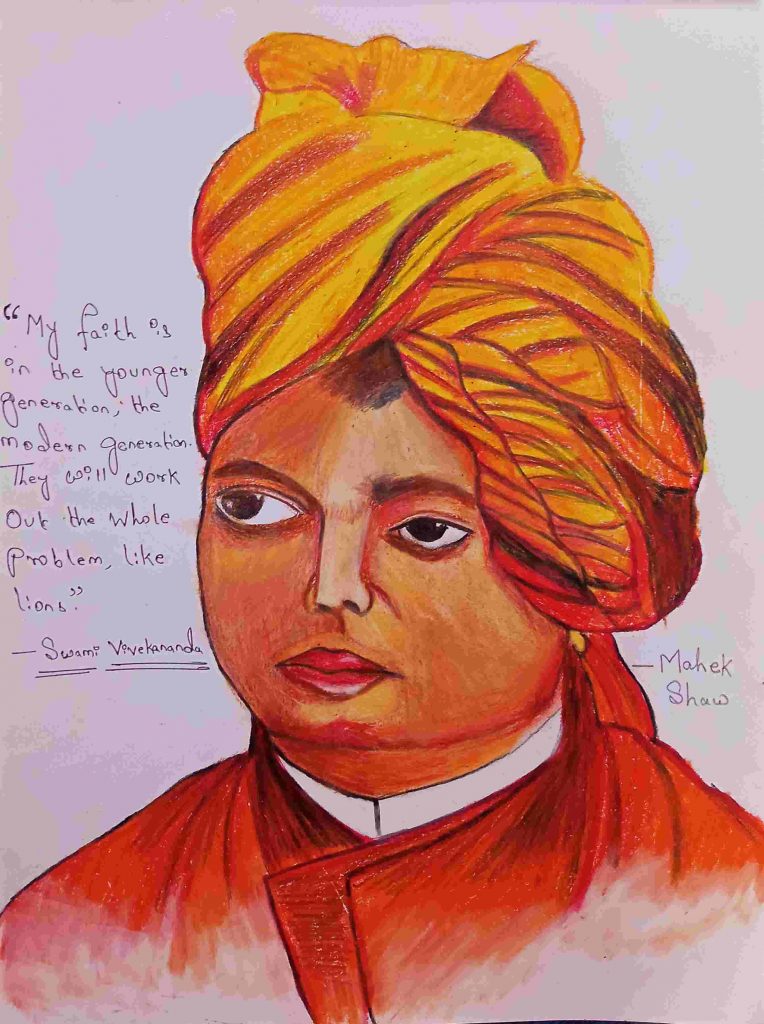 “My faith is
in the younger
generation, the
modern generation.
They will work
Out the whole
Problem, like
lions.”
— Swami Vivekananda
— Mahek
Shaw